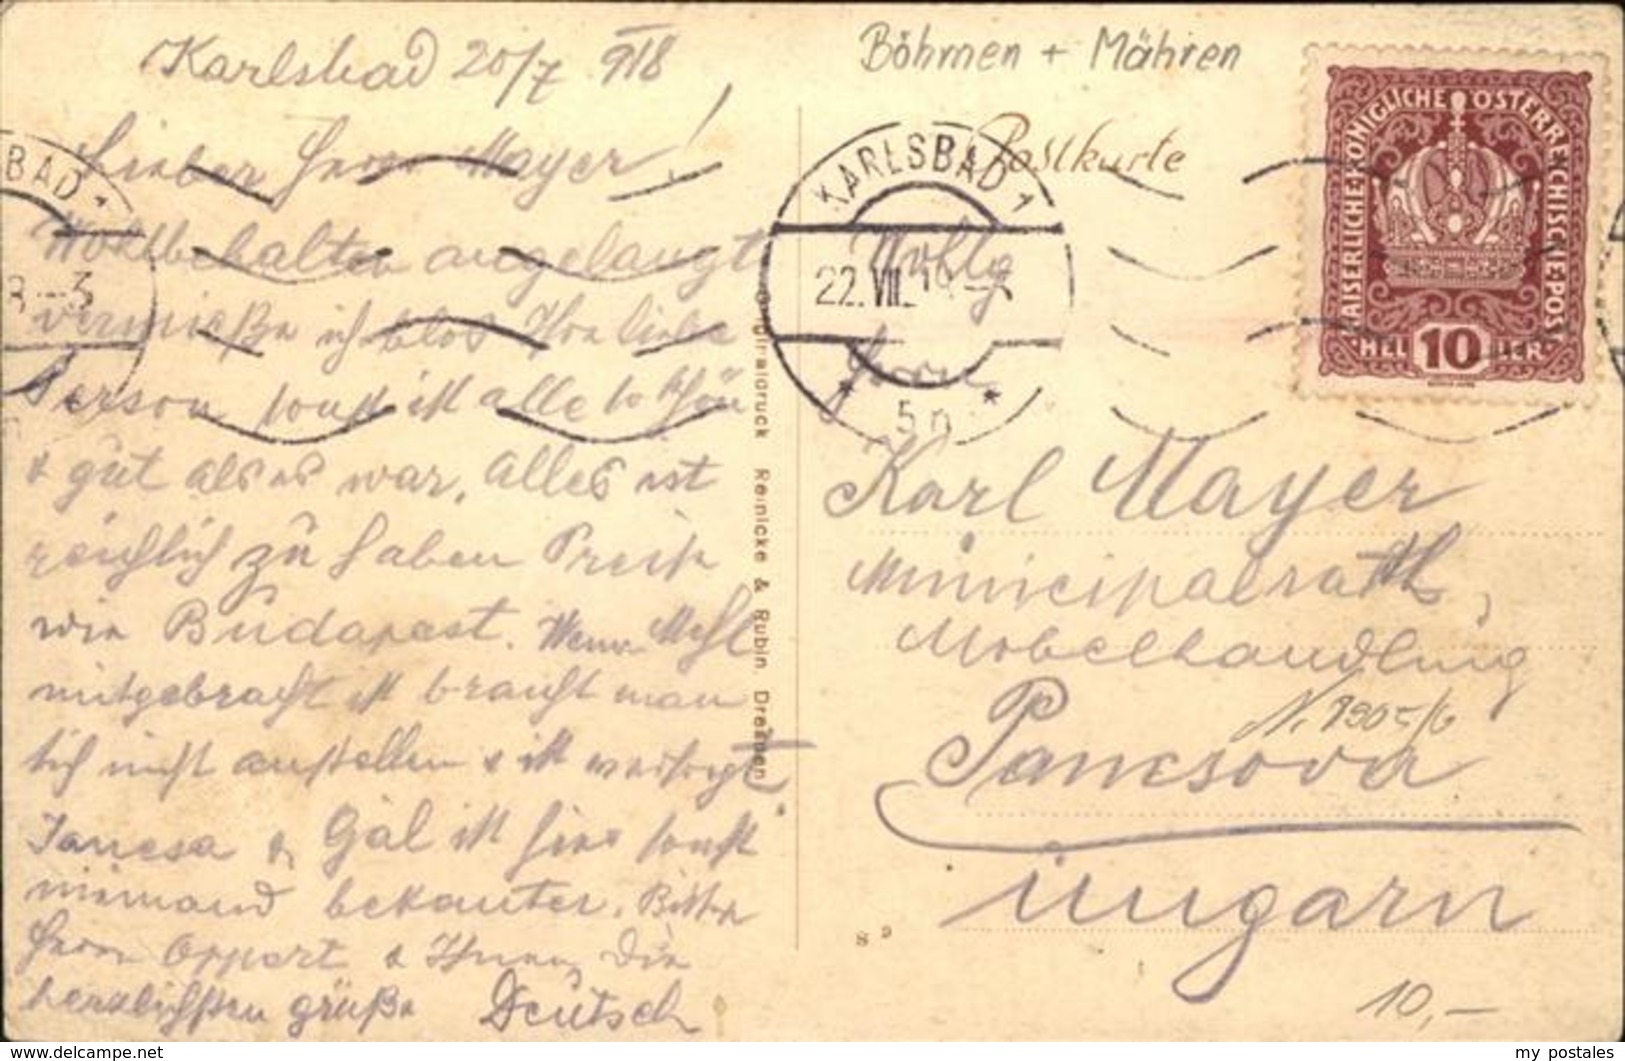 Karlsbad 20/7 918
Lieber Herr Mayer!
Wohlbehalten angelangt
vermisse ich blos Ihre liebe
Person sonst ist alle so schön
& gut als es war. Alles ist
reichlich zu haben Preise
wie Budapest. Wenn Mehl
mitgebracht ist braucht man
sich nicht anstellen & ist versorgt
& Gál ist hier sonst
niemand bekannter. Bitte
Herrn Oppert & Ihnen die
herzlichsten grüße Deutsch
Originaldruck Reinicke & Rubin, Dresden
S 9
Böhmen + Mähren
Postkarte
KARLSBAD 1
22.VII.
5 n
BAD 1
KAISERLICHE KÖNIGLICHE ÖSTERREICHISCHE POST
HELLER 10
Wohlg
Herrn
Karl Mayer
Municipalrath,
Möbelhandlung
Pancsova
Ungarn
10,-
my postales